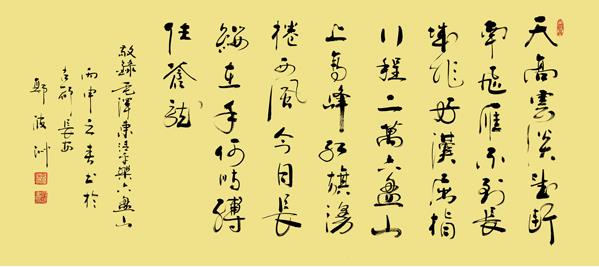 天高雲淡望斷
南飛雁不到長
城非好漢屈指
行程二萬六盘山
上高峰紅旗漫
捲西風今日長
纓在手何時縛
住蒼龍
敬錄毛澤東清平樂六盘山
丙申之春書於
古都長安
鄭波洲